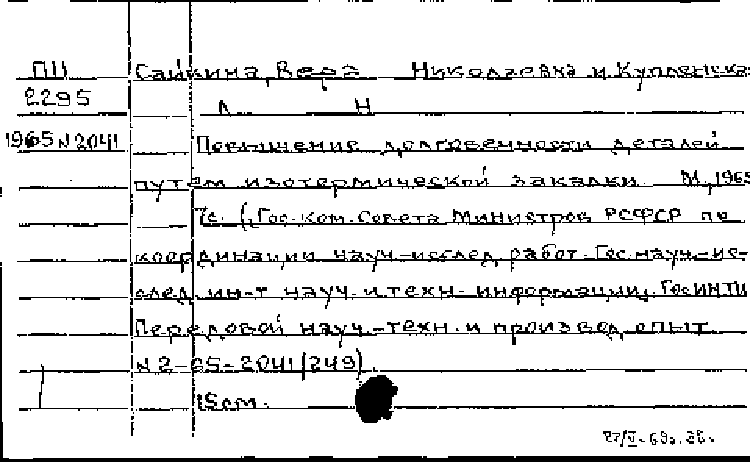 ПШ Сашкина, Вера Николаевна и Купленска
2295 Л Н
1965 N2041 Повышение долговечности деталей
путем изотермической закалки М., 1965
7с. (Гос. ком. Совета Министров РСФСР по
координации науч.-исслед. работ. Гос. науч.-ис-
след. ин-т науч. и техн. информации. ГОСИНТИ
Передовой науч.-техн. и производ. опыт
N 2-65-2041/249).
15cm.